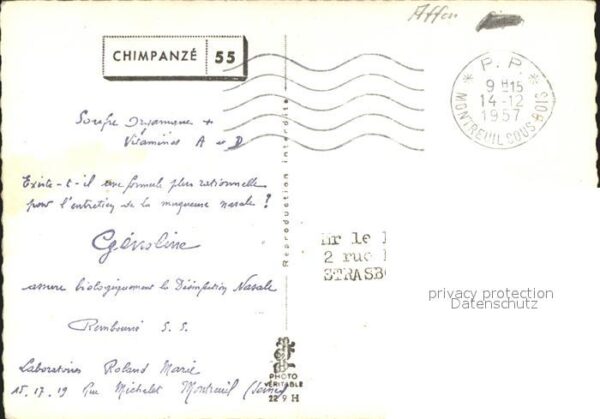 Affen
CHIMPANZÉ 55
* P.P. *
9 H15
14-12
1957
MONTREUIL SOUS BOIS
Soufre Organique +
Vitamines A et D
Existe-t-il une formule plus rationnelle
pour l'entretien de la muqueuse nasale ?
Génoline
assure biologiquement la Désinfection Nasale
Remboursé S. S.
Laboratoires Roland Marie
15.17.19 Rue Michelet Montreuil (Seine)
Reproduction interdite
Mr le
2 rue
STRASBO
privacy protection
Datenschutz
PHOTO
VÉRITABLE
22 9 H